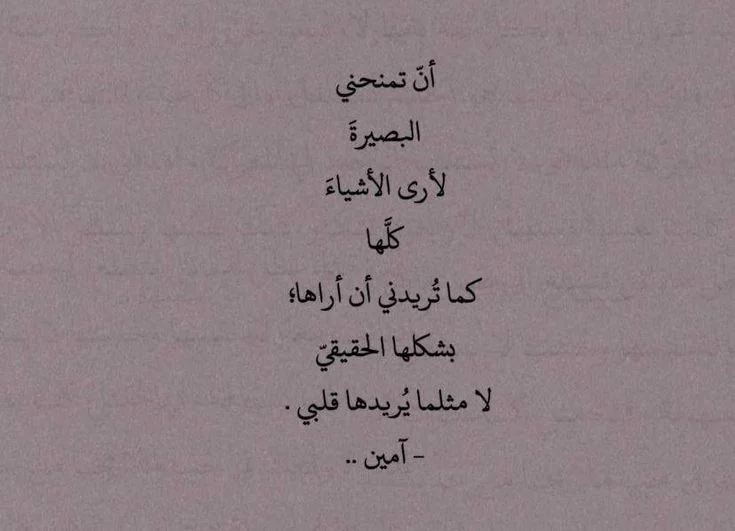 أنّ تمنحني
البصيرةَ
لأرى الأشياءَ
كلَّها
كما تُريدني أن أراها؛
بشكلها الحقيقيّ
لا مثلما يُريدها قلبي .
– آمين ..